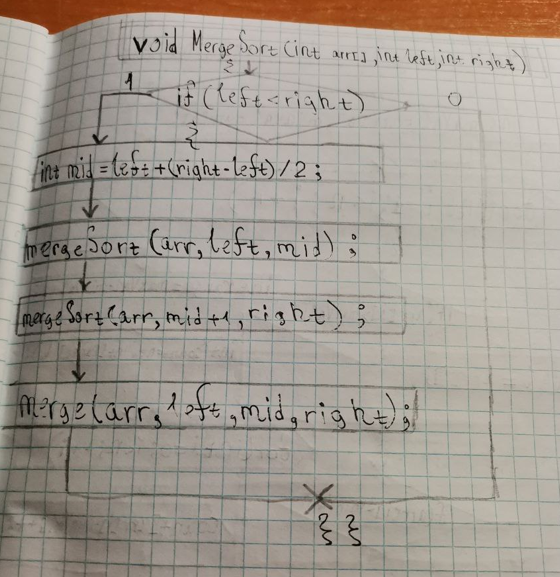 void MergeSort(int arr[], int left, int right)
{
1 if (left < right) 0
{
int mid = left + (right - left) / 2 ;
mergeSort (arr, left, mid) ;
mergeSort (arr, mid + 1, right) ;
merge (arr, left, mid, right) ;
} }